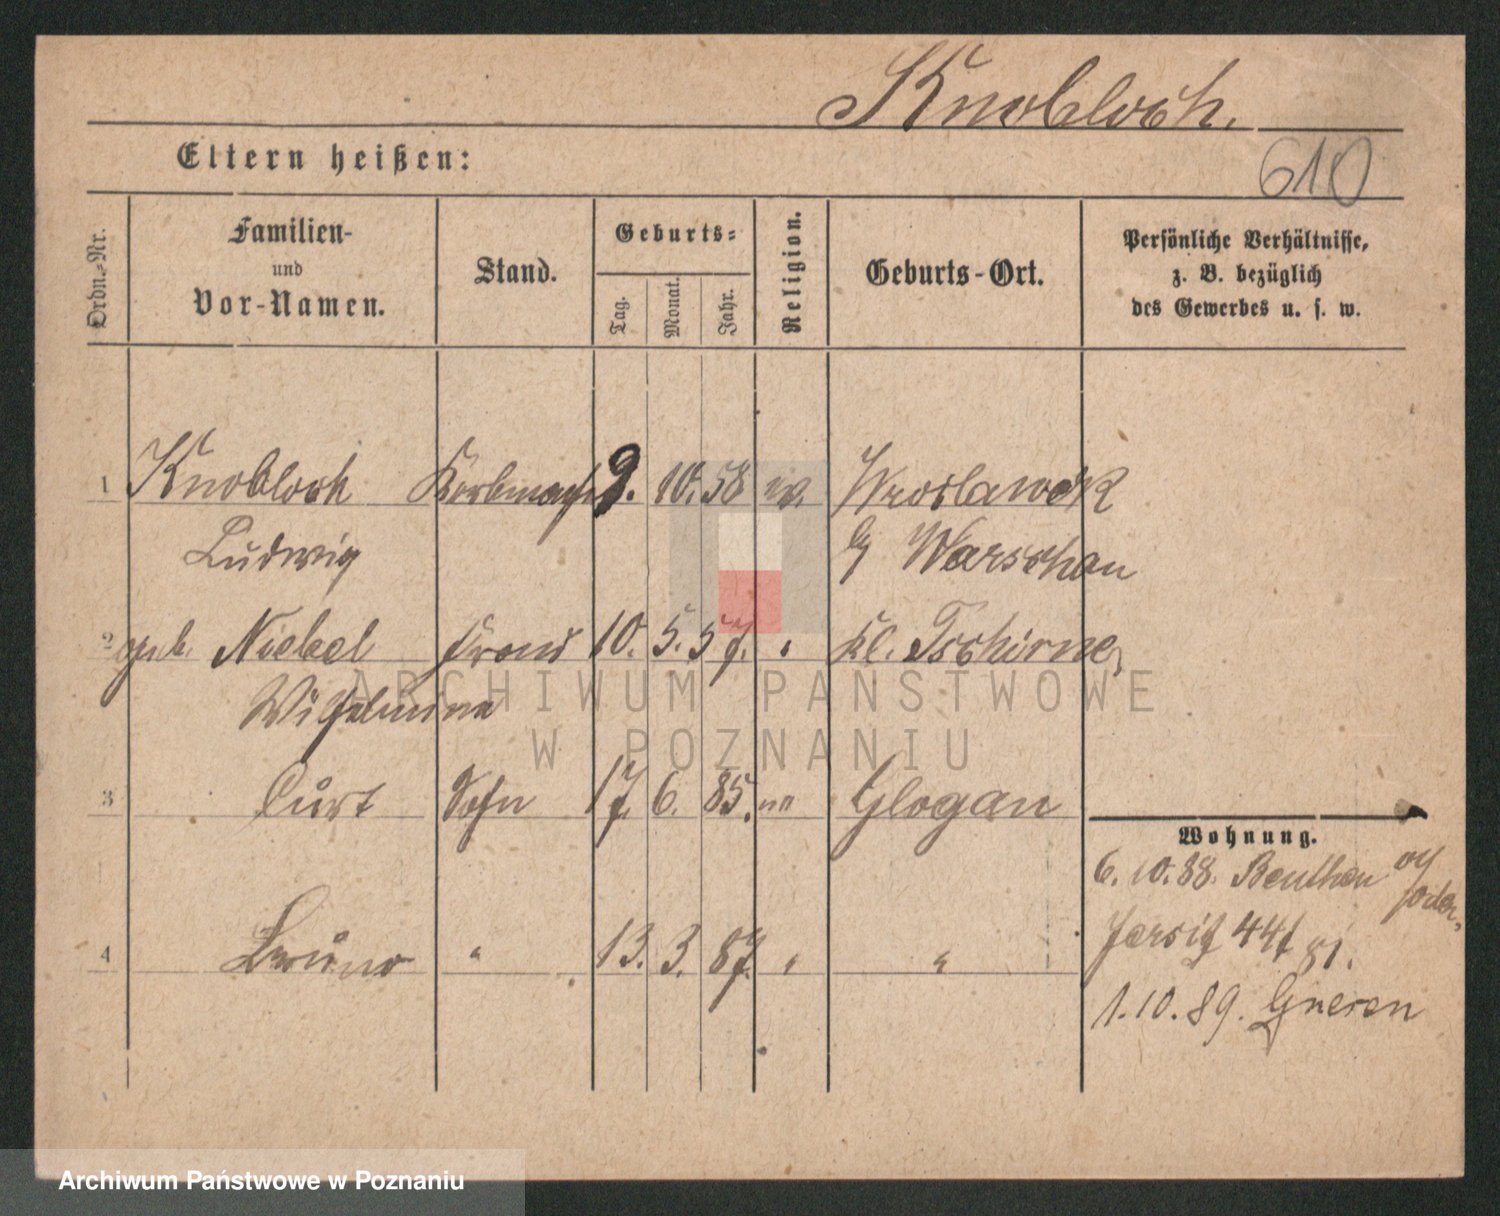 Knobloch.
Eltern heißen:
610
Ordn.-Nr.
Familien-
und
Vor-Namen.
Stand.
Geburts-
Tag.
Monat.
Jahr.
Religion.
Geburts-Ort.
Persönliche Verhältnisse,
z. B. bezüglich
des Gewerbes u. s. w.
1 Knobloch Korbmacher 9. 10. 58 ev. Wroslawek
Ludwig b/ Warschau
2 geb. Niebel Frau 10. 5. 57. " Kl. Tschirne,
Wilhelmine
3 Curt Sohn 17. 6. 85. Glogau
4 Bruno " 13. 3. 87. " "
Wohnung.
6. 10. 88. Beuthen a/
Oder,
Jersitz 44
1. 10. 89. Gnesen
ARCHIWUM PAŃSTWOWE
W POZNANIU
Archiwum Państwowe w Poznaniu